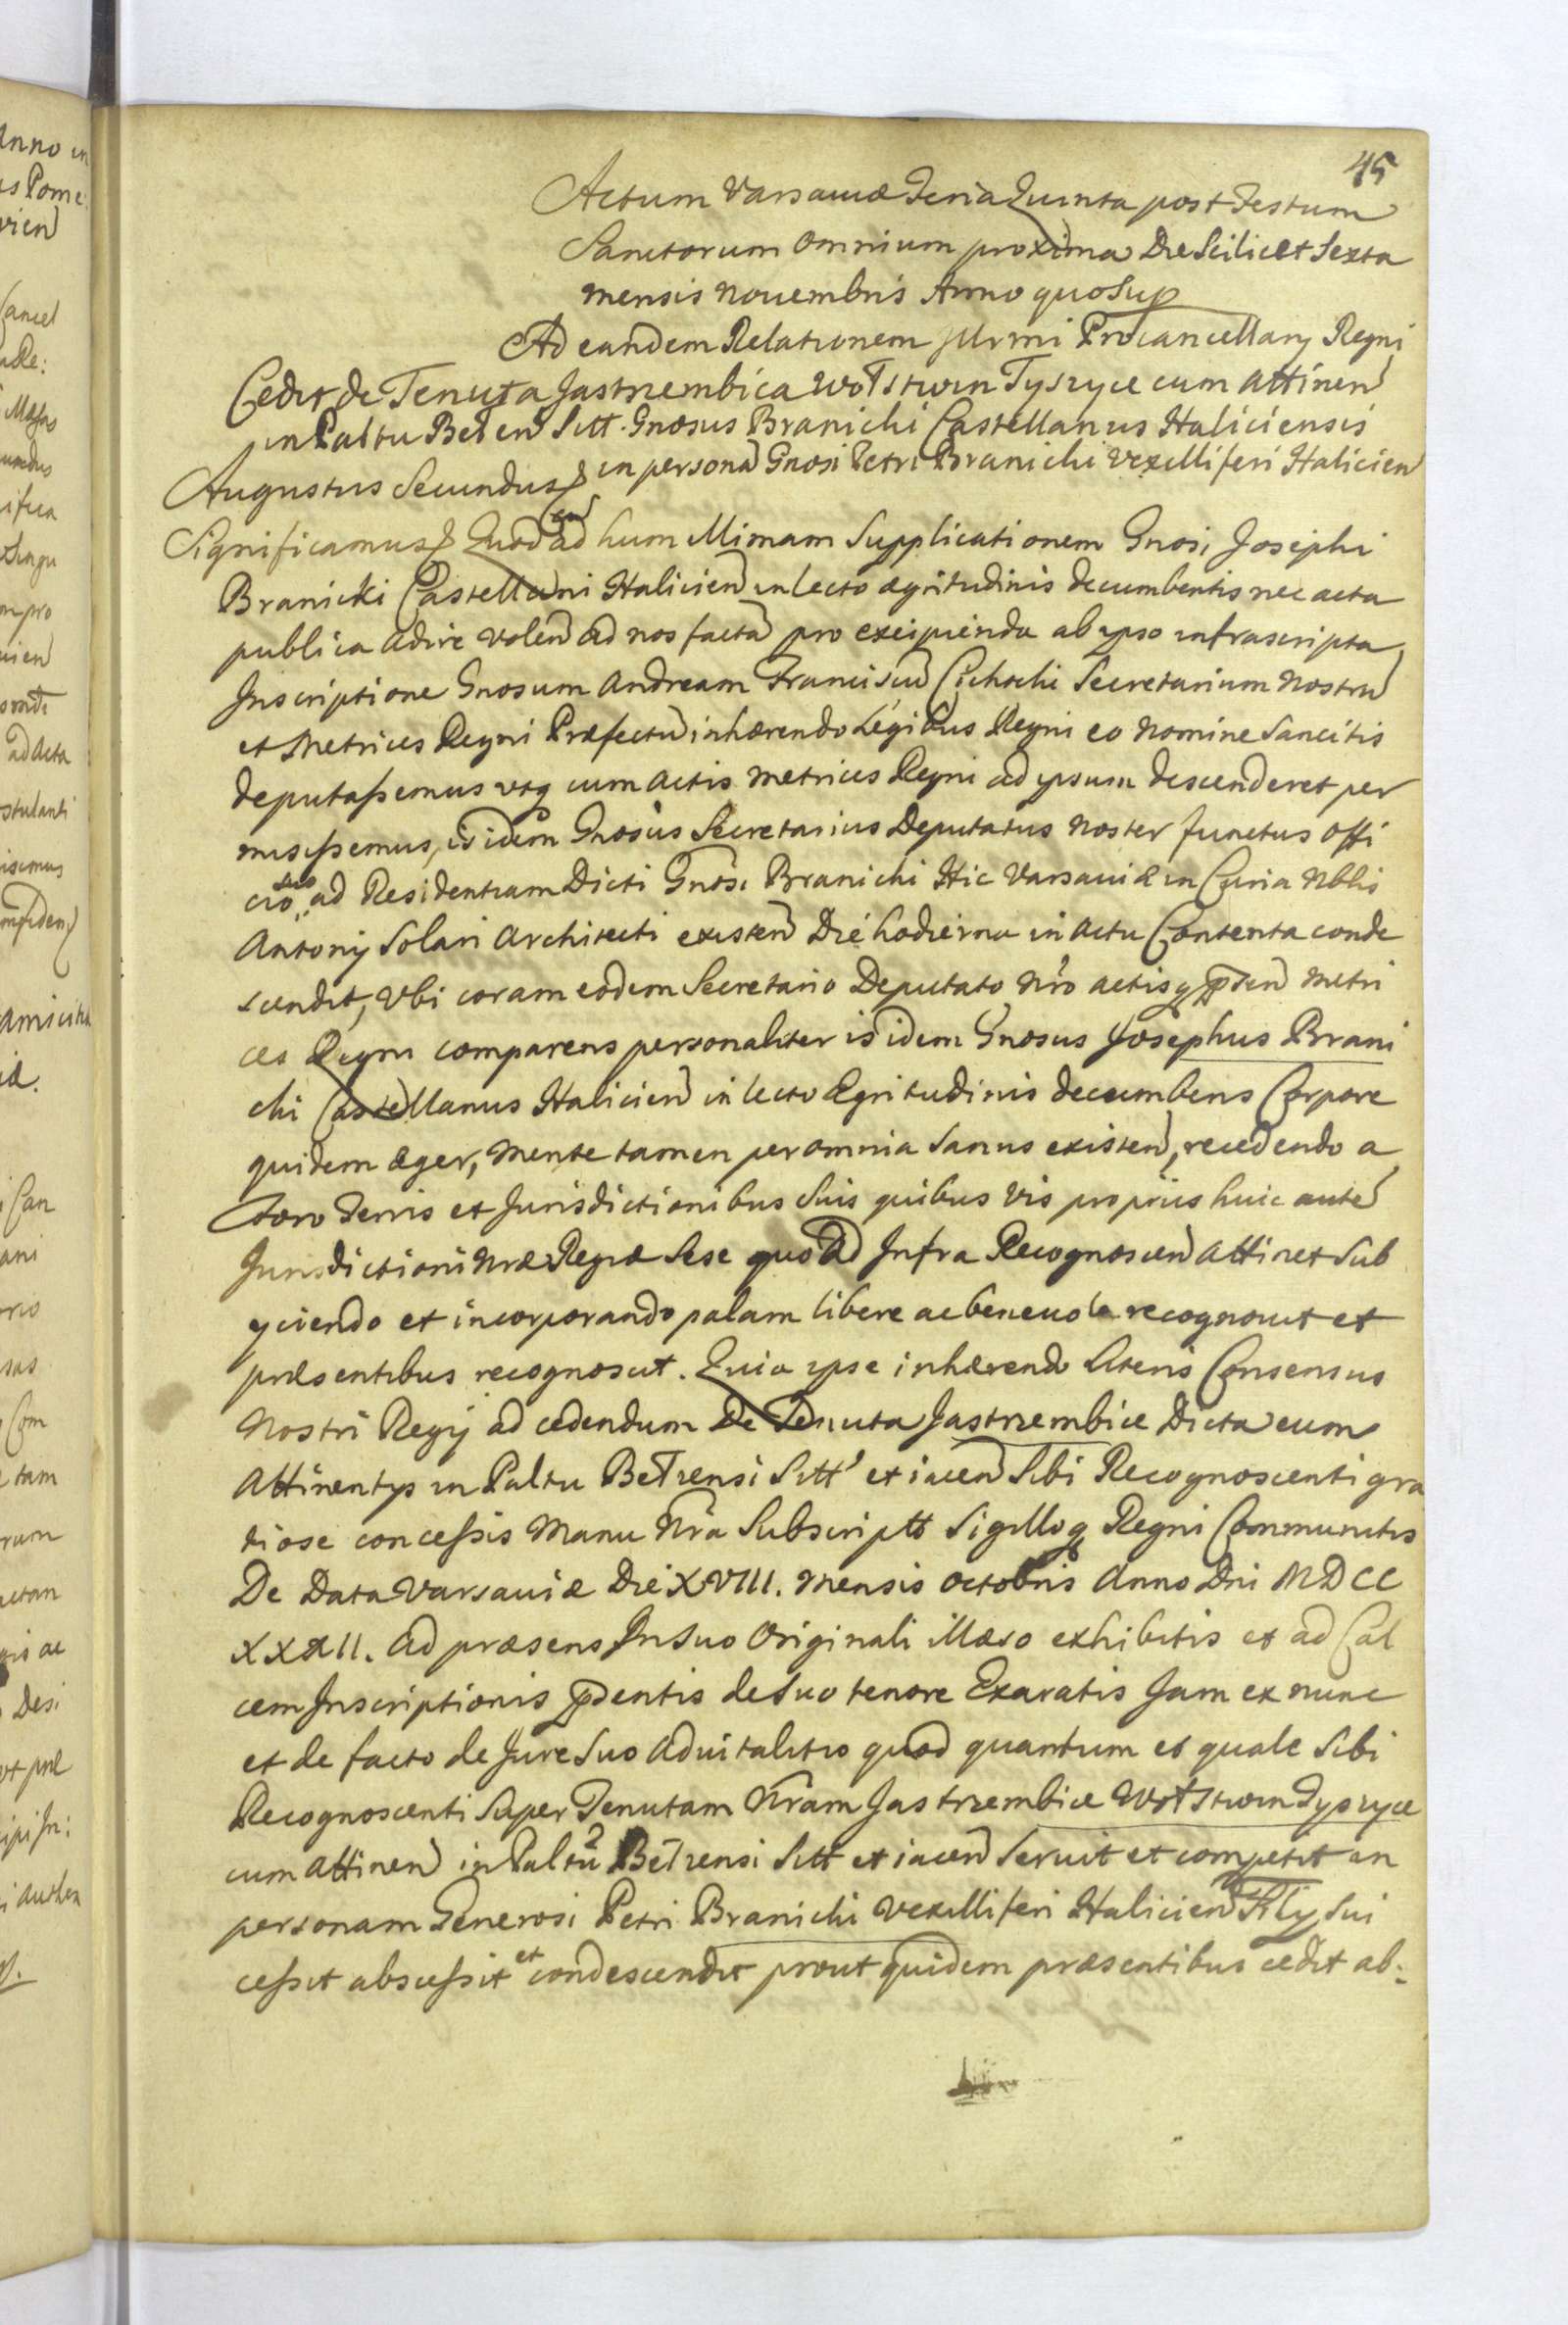 45
Actum Varsaviæ Feria Quinta post Festum
Sanctorum Omnium proxima Die Scilicet Sexta
mensis Novembris Anno quo Sup
Ad eandem Relationem Illrmi Procancellarij Regni
Cedit de Tenuta Jastrzembica Wołstwin Tyszyce cum Attinen
in Paltu Bełzen Sitt. Gnosus Branichi Castellanus Haliciensis
in persona Gnosi Petri Branichi Vexilliferi Halicien
Augustus Secundus
Significamus Quod cu ad humillimam Supplicationem Gnosi Josephi
Branicki Castellani Halicien in lecto ægritudinis decumbentis nec acta
publica adire volen ad nos facta pro excipienda ab ipso infrascripta
Inscriptione Gnosum Andream Franciscu Cichochi Secretarium Nostru
et Metrices Regni Præfectu inhærendo Legibus Regni eo nomine Sancitis
deputassemus utq cum actis metrices Regni ad ipsum descenderet per
misissemus, is idem Gnosus Secretarius Deputatus Noster functus offi
cio suo ad Residentiam Dicti Gnosi Branichi Hic Varsaviæ in Curia Nblis
Antonij Solari Architecti existen Die hodierna in Actu Contenta conde
scendit, Ubi coram eodem Secretario Deputato Nro actisq pnten Metri
ces Regni comparens personaliter is idem Gnosus Josephus Brani
chi Castellanus Halicien in lecto Ægritudinis decumbens Corpore
quidem æger, Mente tamen per omnia Sanus existen, recedendo a
Foro Terris et Jurisdictionibus Suis quibus vis proprijs huic aute
Jurisdictioni Nræ Regiæ Sese quo ad Infra Recognoscen attinet Sub
yciendo et incorporando palam libere ac benevole recognovit et
præsentibus recognoscit. Quia ipse inhærendo Literis Consensus
Nostri Regij ad cedendum De Tenuta Jastrzembice Dicta cum
Attinentys in Paltu Bełzensi Sitt et iacen Sibi Recognoscenti gra
tiose concessis Manu Nra Subscriptt Sigilloq Regni Communitis
De Data Varsaviæ Die XVIII. Mensis Octobris Anno Dni MDCC
XXXII. ad præsens In Suo Originali illæso exhibitis et ad Cal
cem Inscriptionis pntentis de Suo tenore Exaratis Jam ex nunc
et de facto de Jure Suo Advitalitio quod quantum et quale Sibi
Recognoscenti Super Tenutam Nram Jastrzembice Wołstwin Tyszyce
cum Attinen in Paltu Bełzensi Sitt et iacen Servit et competit in
personam Generosi Petri Branichi Vexilliferi Halicien Filij Sui
cessit abscessit et condescendit prout quidem præsentibus cedit ab: